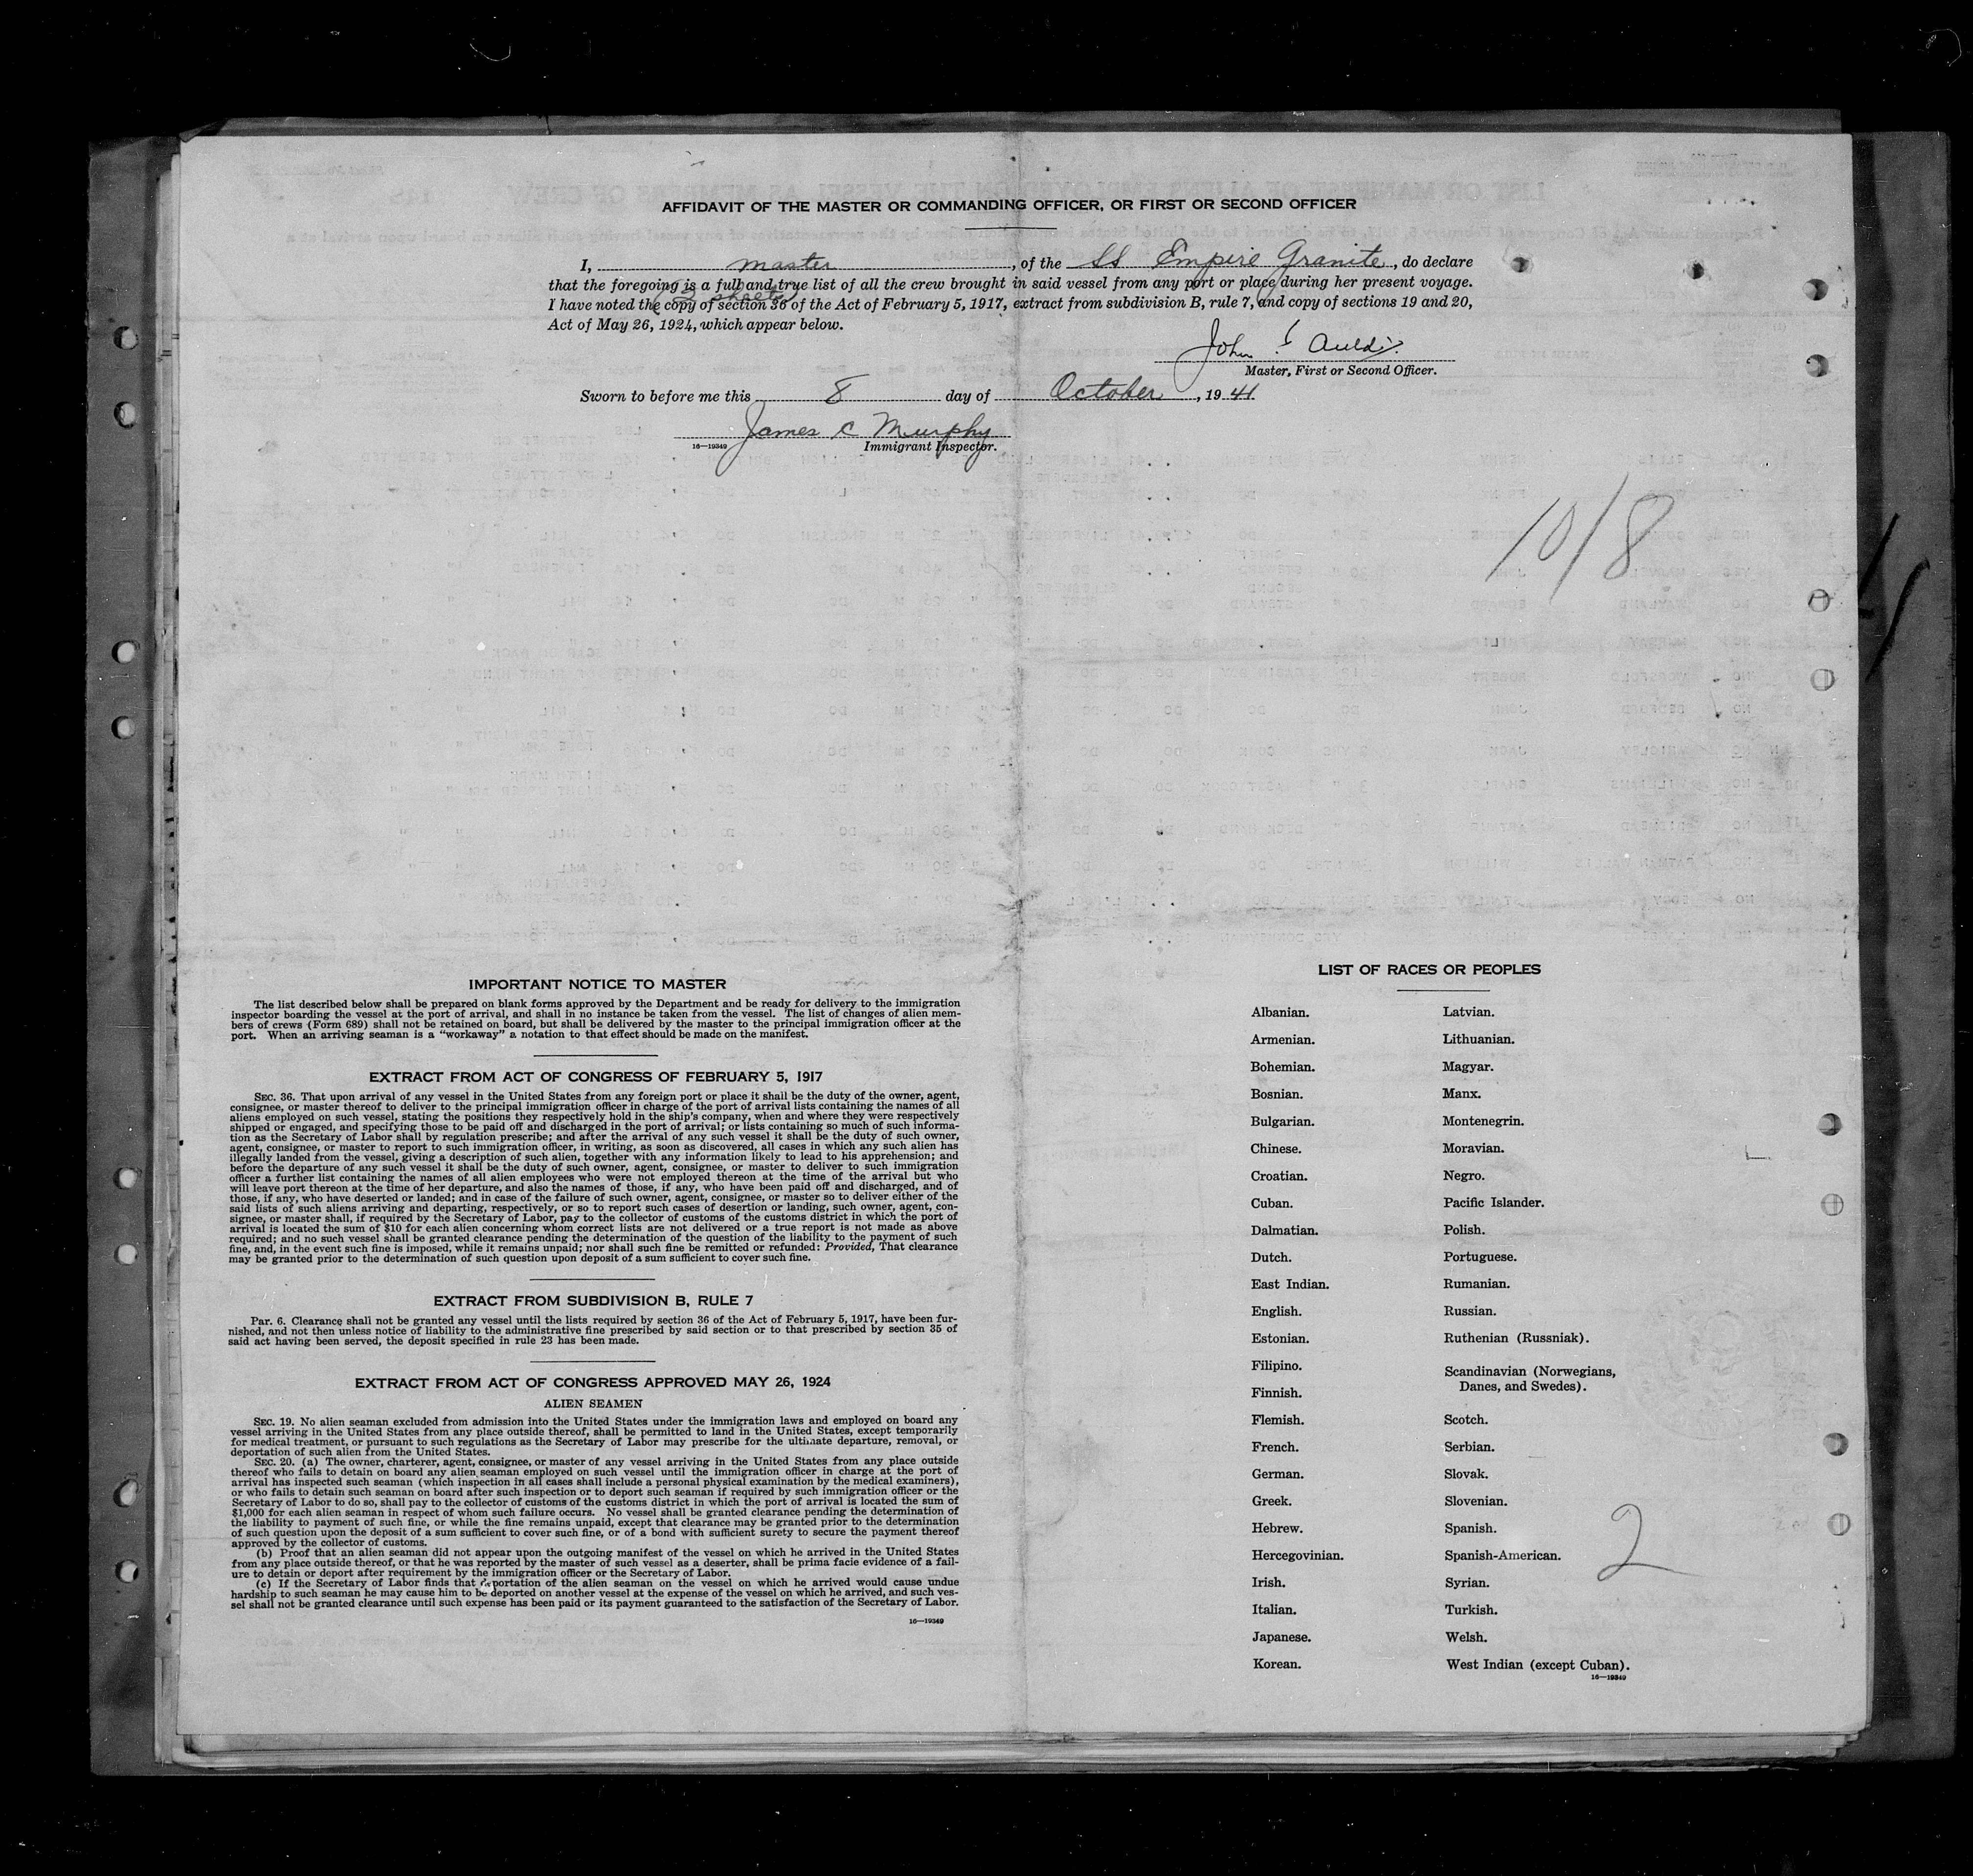 AFFIDAVIT OF THE MASTER OR COMMANDING OFFICER, OR FIRST OR SECOND OFFICER
I, master, of the SS Empire Granite, do declare
that the foregoing is a full and true list of all the crew brought in said vessel from any port or place during her present voyage.
(2 sheets)
I have noted the copy of section 36 of the Act of February 5, 1917, extract from subdivision B, rule 7, and copy of sections 19 and 20,
Act of May 26, 1924, which appear below.
John
Master, First or Second Officer.
Sworn to before me this 8 day of October, 1941
James C Murphy
16—19349 Immigrant Inspector.
10/8
IMPORTANT NOTICE TO MASTER
The list described below shall be prepared on blank forms approved by the Department and be ready for delivery to the immigration
inspector boarding the vessel at the port of arrival, and shall in no instance be taken from the vessel. The list of changes of alien mem-
bers of crews (Form 689) shall not be retained on board, but shall be delivered by the master to the principal immigration officer at the
port. When an arriving seaman is a "workaway" a notation to that effect should be made on the manifest.
EXTRACT FROM ACT OF CONGRESS OF FEBRUARY 5, 1917
SEC. 36. That upon arrival of any vessel in the United States from any foreign port or place it shall be the duty of the owner, agent,
consignee, or master thereof to deliver to the principal immigration officer in charge of the port of arrival lists containing the names of all
aliens employed on such vessel, stating the positions they respectively hold in the ship's company, when and where they were respectively
shipped or engaged, and specifying those to be paid off and discharged in the port of arrival; or lists containing so much of such informa-
tion as the Secretary of Labor shall by regulation prescribe; and after the arrival of any such vessel it shall be the duty of such owner,
agent, consignee, or master to report to such immigration officer, in writing, as soon as discovered, all cases in which any such alien has
illegally landed from the vessel, giving a description of such alien, together with any information likely to lead to his apprehension; and
before the departure of any such vessel it shall be the duty of such owner, agent, consignee, or master to deliver to such immigration
officer a further list containing the names of all alien employees who were not employed thereon at the time of the arrival but who
will leave port thereon at the time of her departure, and also the names of those, if any, who have been paid off and discharged, and of
those, if any, who have deserted or landed; and in case of the failure of such owner, agent, consignee, or master so to deliver either of the
said lists of such aliens arriving and departing, respectively, or so to report such cases of desertion or landing, such owner, agent, con-
signee, or master shall, if required by the Secretary of Labor, pay to the collector of customs of the customs district in which the port of
arrival is located the sum of $10 for each alien concerning whom correct lists are not delivered or a true report is not made as above
required; and no such vessel shall be granted clearance pending the determination of the question of the liability to the payment of such
fine, and, in the event such fine is imposed, while it remains unpaid; nor shall such fine be remitted or refunded: Provided, That clearance
may be granted prior to the determination of such question upon deposit of a sum sufficient to cover such fine.
EXTRACT FROM SUBDIVISION B, RULE 7
Par. 6. Clearance shall not be granted any vessel until the lists required by section 36 of the Act of February 5, 1917, have been fur-
nished, and not then unless notice of liability to the administrative fine prescribed by said section or to that prescribed by section 35 of
said act having been served, the deposit specified in rule 23 has been made.
EXTRACT FROM ACT OF CONGRESS APPROVED MAY 26, 1924
ALIEN SEAMEN
SEC. 19. No alien seaman excluded from admission into the United States under the immigration laws and employed on board any
vessel arriving in the United States from any place outside thereof, shall be permitted to land in the United States, except temporarily
for medical treatment, or pursuant to such regulations as the Secretary of Labor may prescribe for the ultimate departure, removal, or
deportation of such alien from the United States.
SEC. 20. (a) The owner, charterer, agent, consignee, or master of any vessel arriving in the United States from any place outside
thereof who fails to detain on board any alien seaman employed on such vessel until the immigration officer in charge at the port of
arrival has inspected such seaman (which inspection in all cases shall include a personal physical examination by the medical examiners),
or who fails to detain such seaman on board after such inspection or to deport such seaman if required by such immigration officer or the
Secretary of Labor to do so, shall pay to the collector of customs of the customs district in which the port of arrival is located the sum of
$1,000 for each alien seaman in respect of whom such failure occurs. No vessel shall be granted clearance pending the determination of
the liability to payment of such fine, or while the fine remains unpaid, except that clearance may be granted prior to the determination
of such question upon the deposit of a sum sufficient to cover such fine, or of a bond with sufficient surety to secure the payment thereof
approved by the collector of customs.
(b) Proof that an alien seaman did not appear upon the outgoing manifest of the vessel on which he arrived in the United States
from any place outside thereof, or that he was reported by the master of such vessel as a deserter, shall be prima facie evidence of a fail-
ure to detain or deport after requirement by the immigration officer or the Secretary of Labor.
(c) If the Secretary of Labor finds that deportation of the alien seaman on the vessel on which he arrived would cause undue
hardship to such seaman he may cause him to be deported on another vessel at the expense of the vessel on which he arrived, and such ves-
sel shall not be granted clearance until such expense has been paid or its payment guaranteed to the satisfaction of the Secretary of Labor.
16—19349
LIST OF RACES OR PEOPLES
Albanian. Latvian.
Armenian. Lithuanian.
Bohemian. Magyar.
Bosnian. Manx.
Bulgarian. Montenegrin.
Chinese. Moravian.
Croatian. Negro.
Cuban. Pacific Islander.
Dalmatian. Polish.
Dutch. Portuguese.
East Indian. Rumanian.
English. Russian.
Estonian. Ruthenian (Russniak).
Filipino. Scandinavian (Norwegians,
Danes, and Swedes).
Finnish.
Flemish. Scotch.
French. Serbian.
German. Slovak.
Greek. Slovenian.
Hebrew. Spanish.
Hercegovinian. Spanish-American.
Irish. Syrian.
Italian. Turkish.
Japanese. Welsh.
Korean. West Indian (except Cuban).
16—19349
2